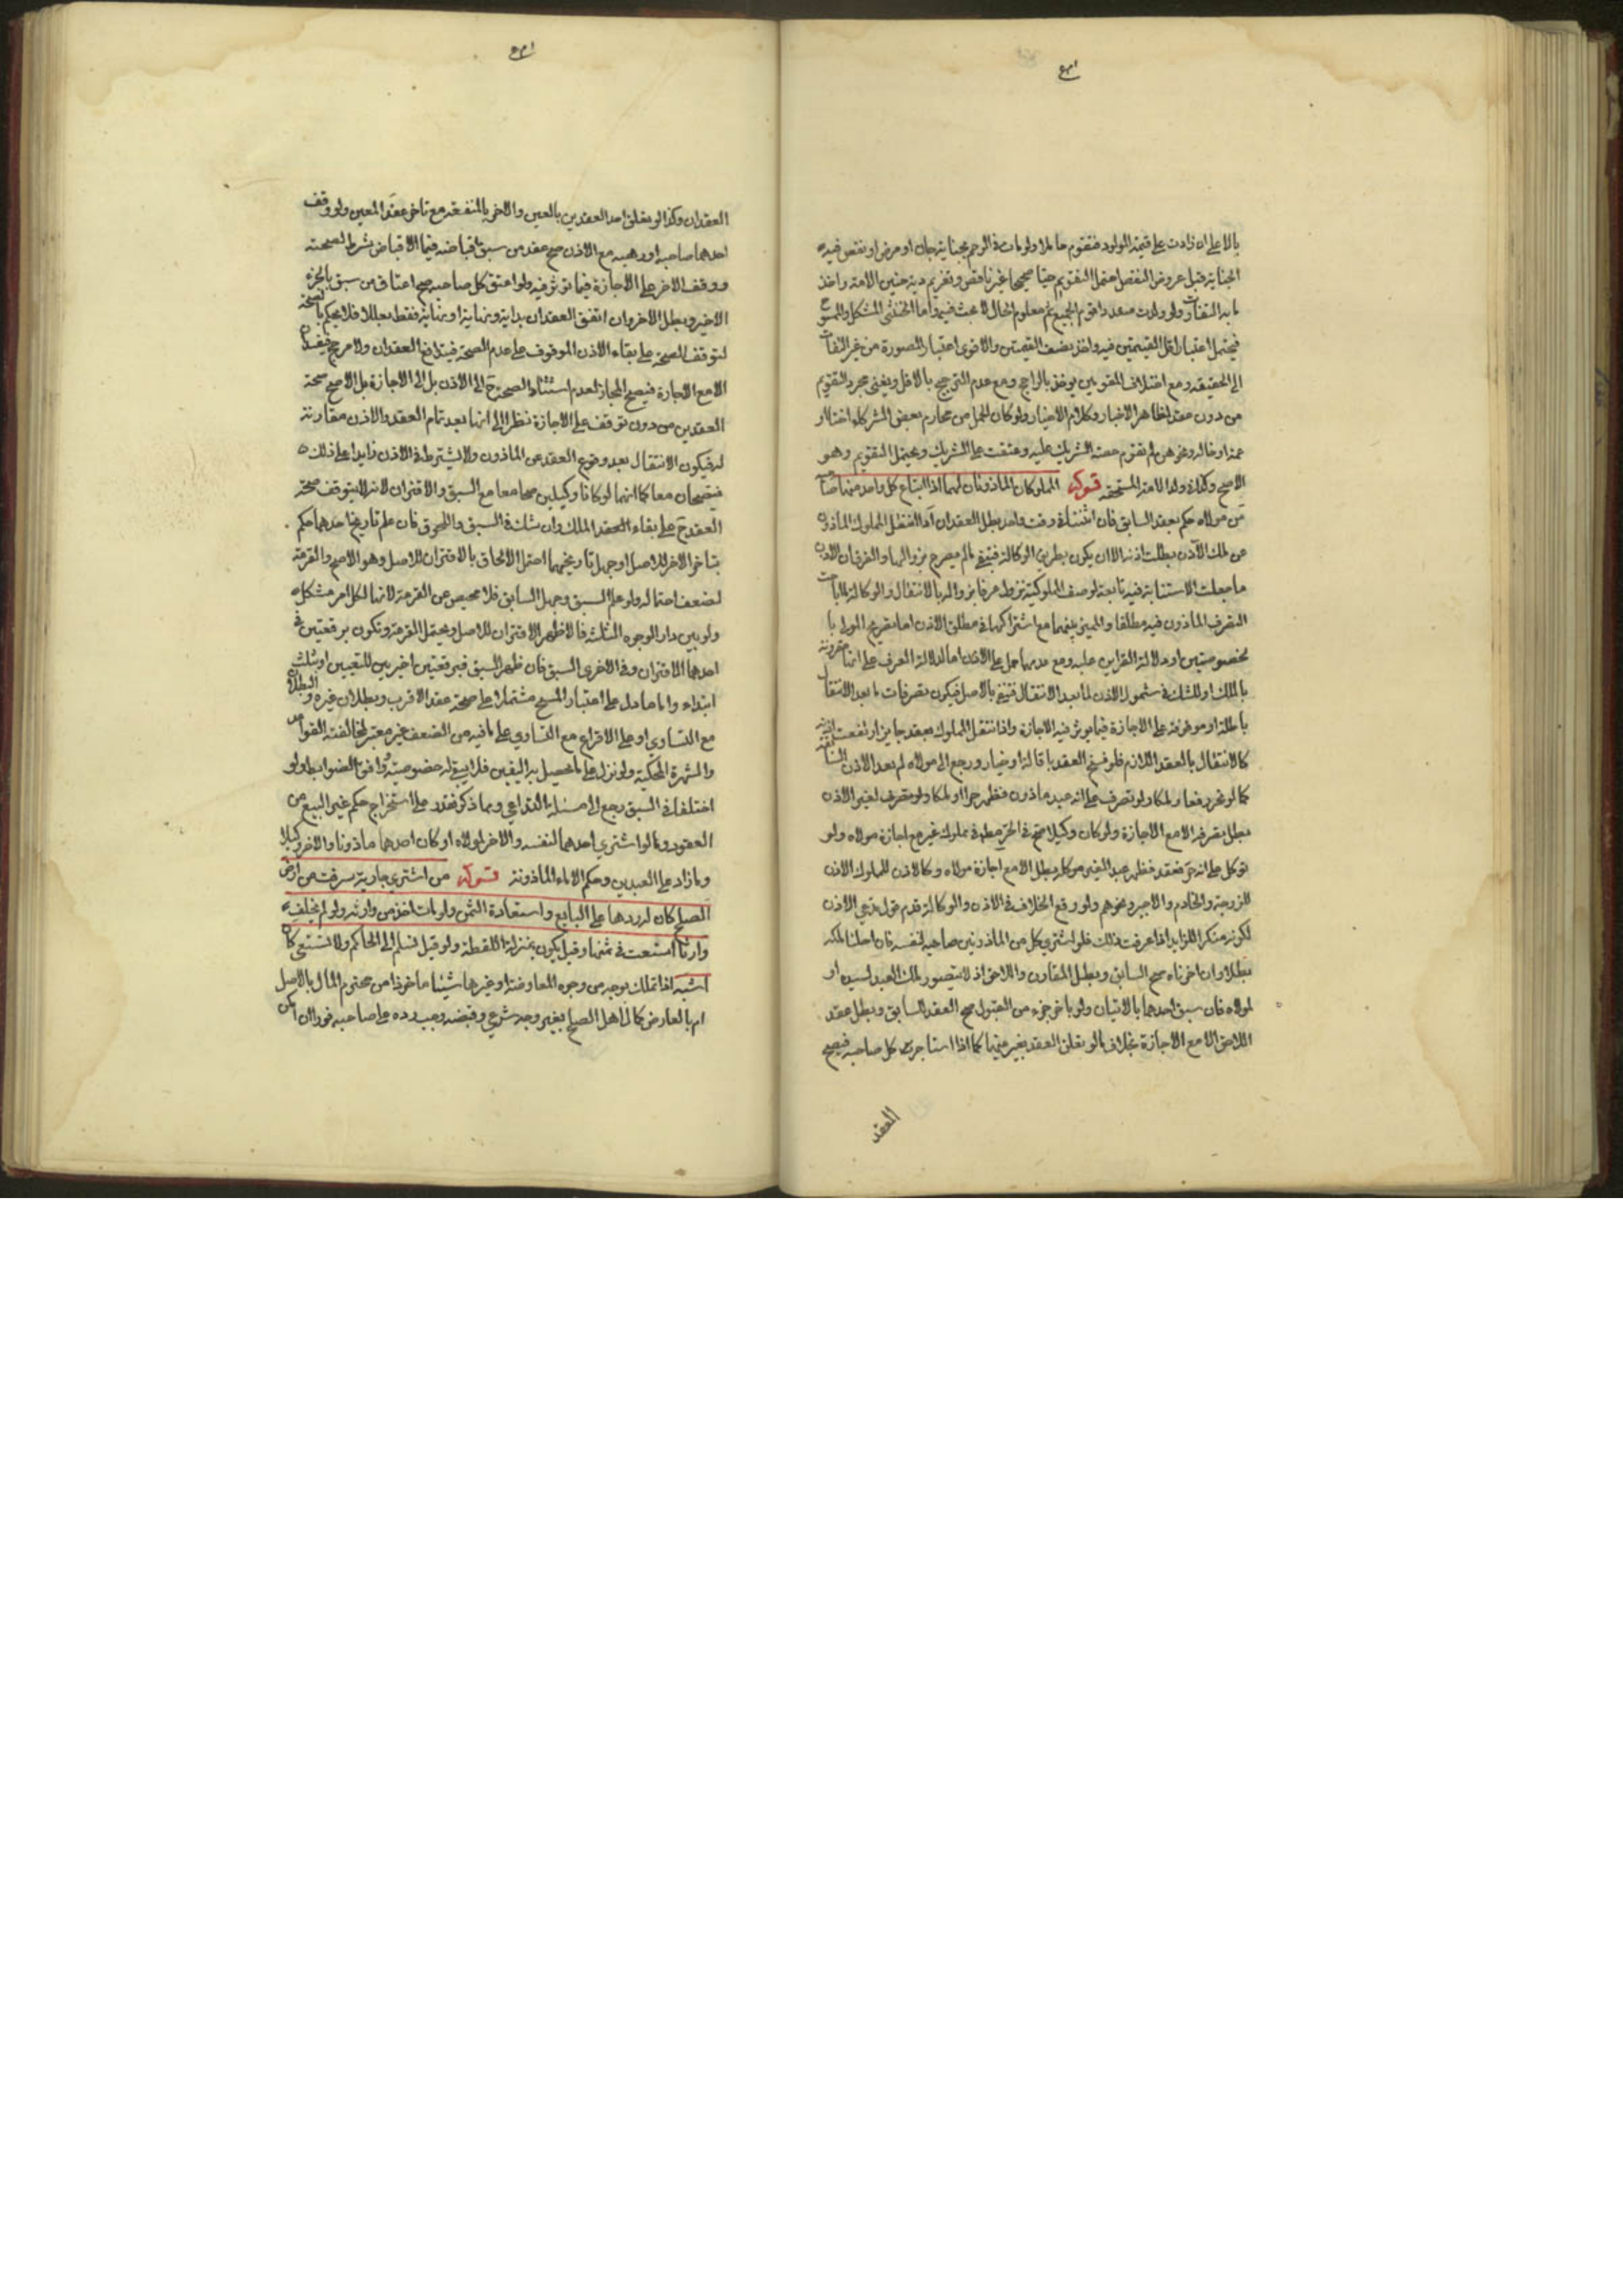 بالاعلى ان زادت على قيمة الولود فتقوم حاملا ولو مات في الرحم بجناية جان او مرض او نقص فيه
الجناية قبل عروض النقص احتمل التقويم حيا صحيحا غير ناقص وتغريم دية جنين الامة واخذ
ما به التفاوت ولو ولدت متعددا قوم الجميع ثم معلوم الحال لا بحث فيه واما الخنثى المشكل والممسوح
فيحتمل اعتبار اقل القيمتين فيه واخذ نصف القيمتين والاقوى اعتبار الصورة من غير التفات
الى الحقيقة ومع اختلاف المقومين يوخذ بالراجح ومع عدم الترجيح بالاقل ويغني مجرد التقويم
من دون عقد لظاهر الاخبار وكلام الاخيار ولو كان الحمل من محارم بعض الشركاء اختا او
عمة او خالة ونحوهن لم تقوم حصة الشريك عليه وعتقت على الشريك ويحتمل التقويم وهو
الاصح وكذا ولد الامة المستحقة قوله المملوكان الماذونان لهما اذا ابتاع كل واحد منهما صاحبه
من مولاه حكم بعقد السابق فان اتفقا في وقت واحد بطل العقدان اذا انتقل المملوك الماذون
عن ملك الآذن بطلت اذنه الا ان يكون بطريق الوكالة فتبقى ما لم يصرح بزوالها والفرق ان الاذن
ما جعلت الاستنابة فيه تابعة لوصف المملوكية تزول عرفا بزواله بالانتقال والوكالة ما اباحت
التصرف الماذون فيه مطلقا والمميز بينهما مع اشتراكهما في مطلق الاذن اما تصريح المولى با
لخصوصيتين او دلالة القراين عليه ومع عدمهما حمل على الاذن اما لدلالة العرف على انها مقرونة
بالملك او للشك في شمول الاذن لما بعد الانتقال فتنفى بالاصل فيكون تصرفات ما بعد الانتقال
باطلة او موقوفة على الاجازة فيما يوثر فيه الاجازة واذا انتقل المملوك بعقد جايز ارتفعت اذنه
كالانتقال بالعقد اللازم فلو فسخ العقد باقالة او خيار ورجع الى مولاه لم يعد الاذن السابقة
كما لو تحرر دفعا ولو تصرف على انه عبد ماذون فظهر حرا او تصرف لغير الاذن
بطل تصرفه الا مع الاجازة ولو كان وكيلا صح في الحر مطلقا وفي مملوك غير مع اجازة مولاه ولو
توكل على انه حر فعقد فظهر عبد الغير موكله بطل الا مع اجازة مولاه وكالاذن للمملوك الاذن
للزوجة والخادم والاجير ونحوهم ولو وقع الخلاف في الاذن والوكالة قدم قول مدعي الاذن
لكونه منكر اللزايد اذا عرفت ذلك فلو اشترى كل من الماذونين صاحبه لنفسه فان احلنا ملكه
بطلا وان اجزناه صح السابق وبطل المقارن واللاحق اذ لا يتصور ملك العبد لسيده او
لمولاه فان سبق احدهما بالاتيان ولو باخر جزء من القبول صح العقد السابق وبطل عقد
اللاحق الا مع الاجازة بخلاف ما لو تعلق العقد بغير عينها كما اذا استاجر كل صاحبه فيصح
العقد
العقدان وكذا لو تعلق احد العقدين بالعين والاخر بالمنفعة مع تاخر عقد المعين ولو وقف
احدهما صاحبه او وهبه مع الاذن صح عقد من سبق اقباضه فيما الاقباض شرط لصحته
ووقف الاخر على الاجازة فيما توثر فيه ولو اعتق كل صاحبه صح اعتاق من سبق بالجزء
الاخير وبطل الاخر وان اتفق العقدان بداية ونهاية او نهاية فقط بطلا فلا يحكم بالصحة
لتوقف الصحة على بقاء الاذن الموقوف على عدم الصحة فيتدافع العقدان ولا مرجح فيفسدان
الا مع الاجازة فيصح المجاز لعدم استناد الصحة ح الى الاذن بل الى الاجازة بل الاصح صحة
العقدين من دون توقف على الاجازة نظرا الى انها بعد تمام العقد والاذن مقارنة
له فيكون الانتقال بعد وقوع العقد عن الماذون ولا يشترط في الاذن زايدا على ذلك
فيصحان معا كما انهما لو كانا وكيلين صحا معا مع السبق والاقتران لانه لا يتوقف صحة
العقد ح على بقاء الملك وان شك في السبق واللحوق فان علم تاريخ احدهما حكم
بتاخر الاخر للاصل او جهل تاريخهما احتمل الالحاق بالاقتران للاصل وهو الاصح والقرعة
لضعف احتماله ولو علم السبق وجهل السابق فلا محيص عن القرعة لانها لكل امر مشكل
ولو بين دار الوجوه الثلثة فالاظهر الاقتران للاصل ويحتمل القرعة وتكون برقعتين في
احدهما الاقتران وفي الاخرى السبق فان ظهر السبق فبرقعتين اخريين للتعيين او بثلث
ابتداء واما ما دل على اعتبار المسح مشتملا على صحة عقد الاقرب وبطلان غيره والبطلان
مع التساوي او على الاقراع مع التساوي على ما فيه من الضعف غير معتبر لمخالفته القواعد
والشهرة المحكية ولو نزل على ما يحصل به اليقين فلا يبقى له خصوصية وافق الضوابط ولو
اختلفا في السبق رجع الى مسئلة التداعي وبما ذكر تقدر على استخراج حكم غير البيع من
العقود وما لو اشترى احدهما لنفسه والاخر لمولاه او كان احدهما ماذونا والاخر وكيلا
وما زاد على العبدين وحكم الاماء الماذونة قوله من اشترى جارية سرقت من ارض
الصلح كان له ردها على البايع واستعادة الثمن ولو مات اخذ من وارثه ولو لم يخلف
وارثا استسعت في ثمنها وقيل يكون بمنزلة اللقطة ولو قيل تسلم الى الحاكم ولا تستسعى كان
اشبه اذا تملك بوجه من وجوه المعاوضة او غيرها شيئا ماخوذا من محترم المال بالاصل
ام بالعارض كمال اهل الصلح بغير وجه شرعي وقبضه وجب رده على صاحبه فورا ان امكن